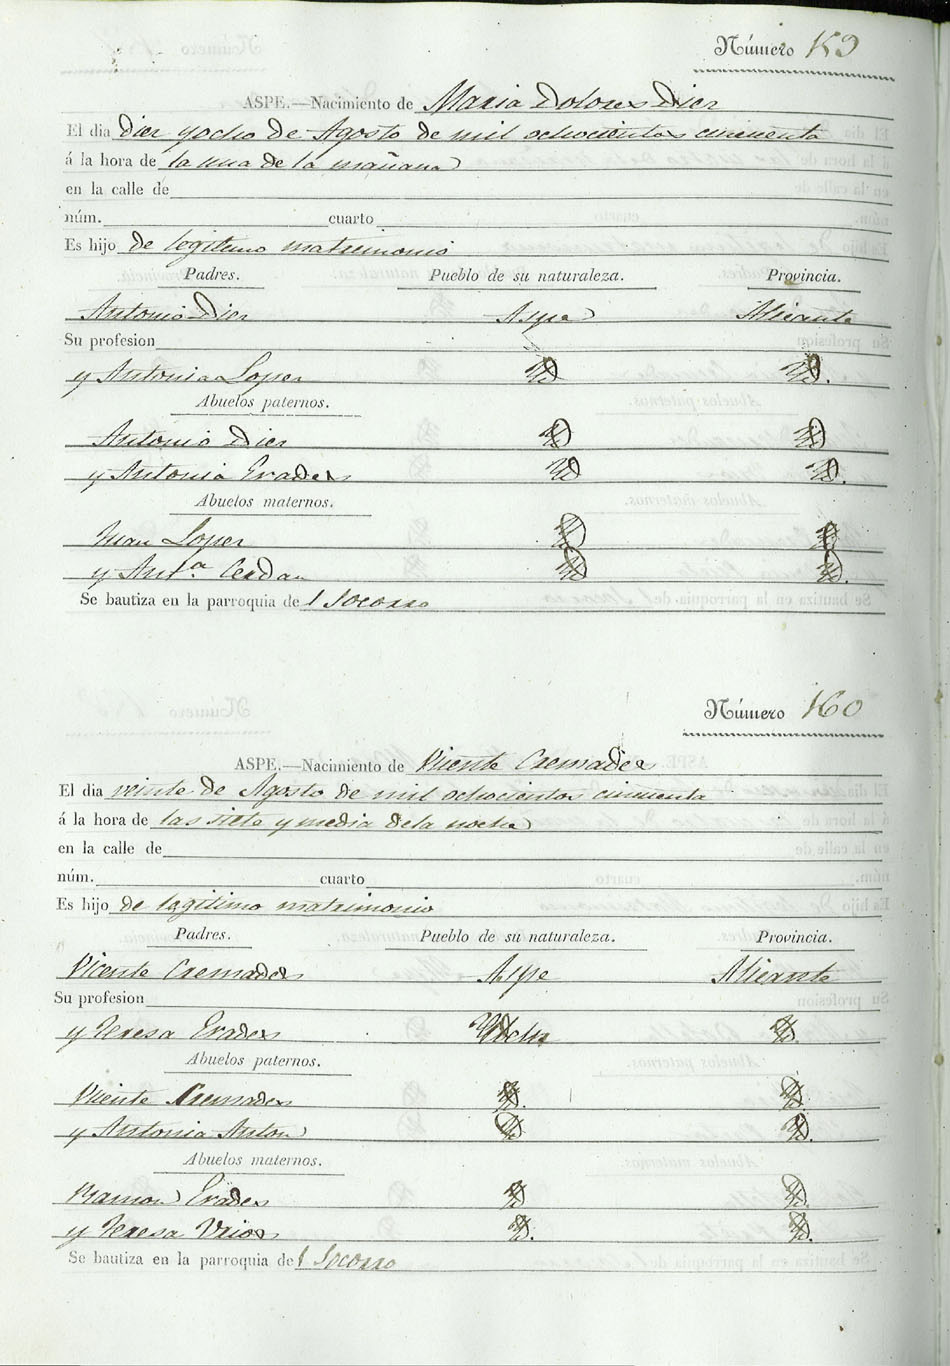 Número 159
ASPE.—Nacimiento de Maria Dolores Diez
El dia diez y ocho de Agosto de mil ochocientos cincuenta
á la hora de la una de la mañana
en la calle de
núm. cuarto
Es hijo de legitimo matrimonio
Padres. Pueblo de su naturaleza. Provincia.
Antonio Diez Aspe Alicante
Su profesion
y Antonia Lopez Yd Yd.
Abuelos paternos.
Antonio Diez Yd Yd
y Antonia Erades Yd Yd.
Abuelos maternos.
Juan Lopez Yd Yd
y Ant.ª Cerdan Yd Yd.
Se bautiza en la parroquia de l Socorro
Número 160
ASPE.—Nacimiento de Vicente Cremades
El dia veinte de Agosto de mil ochocientos cincuenta
á la hora de las siete y media de la noche
en la calle de
núm. cuarto
Es hijo de lagitimo matrimonio
Padres. Pueblo de su naturaleza. Provincia.
Vicente Cremades Aspe Alicante
Su profesion
y Teresa Erades Yd.
Abuelos paternos.
Vicente Cremades Yd. Yd.
y Antonia Anton Yd. Yd.
Abuelos maternos.
Ramon Erades Yd Yd.
y Teresa Urios Yd. Yd.
Se bautiza en la parroquia de l Socorro